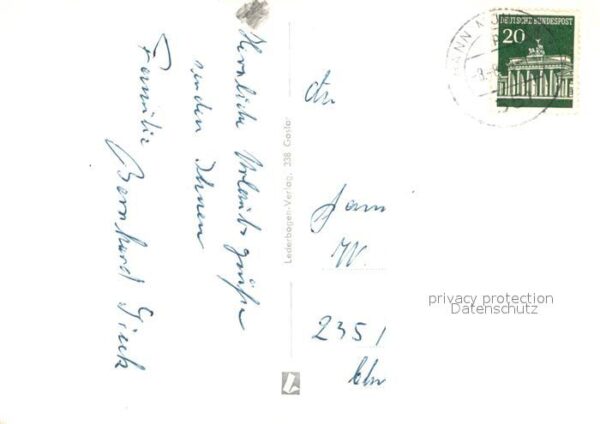 Herzliche Urlaubsgrüße
senden Ihnen
Familie
Bernhard
Lederbogen-Verlag, 338 Goslar
An
Fam
W.
2351
DEUTSCHE BUNDESPOST
20
HANN
privacy protection
Datenschutz